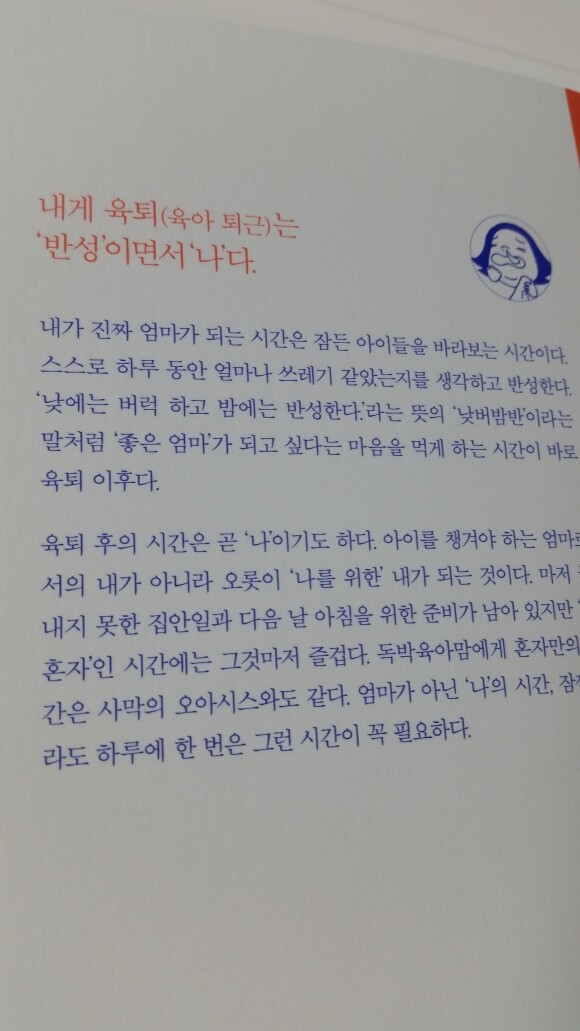 내게 육퇴(육아 퇴근)는
‘반성’이면서 ‘나’다.
내가 진짜 엄마가 되는 시간은 잠든 아이들을 바라보는 시간이다.
스스로 하루 동안 얼마나 쓰레기 같았는지를 생각하고 반성한다.
‘낮에는 버럭 하고 밤에는 반성한다.’라는 뜻의 ‘낮버밤반’이라는
말처럼 ‘좋은 엄마’가 되고 싶다는 마음을 먹게 하는 시간이 바로
육퇴 이후다.
육퇴 후의 시간은 곧 ‘나’이기도 하다. 아이를 챙겨야 하는 엄마로
서의 내가 아니라 오롯이 ‘나를 위한’ 내가 되는 것이다. 마저
내지 못한 집안일과 다음 날 아침을 위한 준비가 남아 있지만
혼자’인 시간에는 그것마저 즐겁다. 독박육아맘에게 혼자만의
간은 사막의 오아시스와도 같다. 엄마가 아닌 ‘나’의 시간,
라도 하루에 한 번은 그런 시간이 꼭 필요하다.